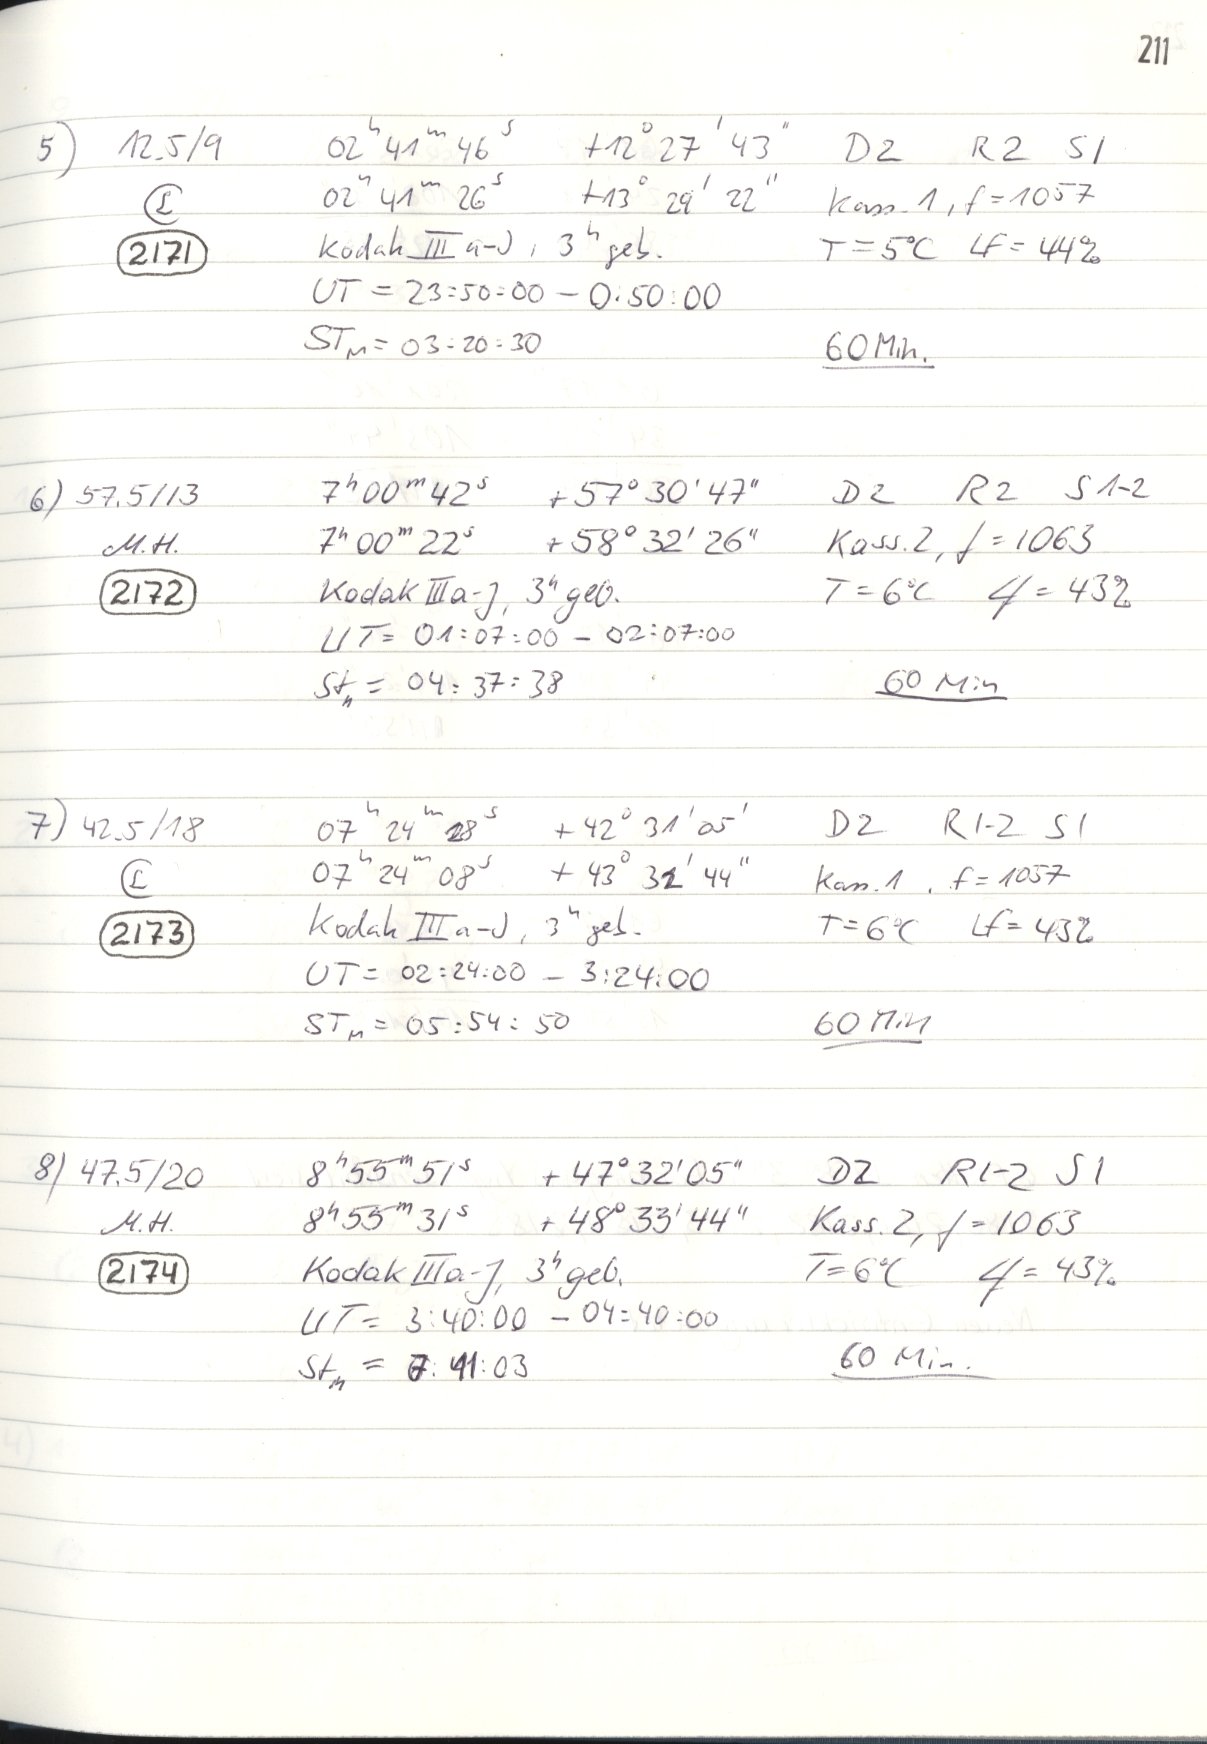 211
5) 12.5/9 02ʰ 41ᵐ 46ˢ +12° 27' 43" D2 R2 S1
Ⓛ 02ʰ 41ᵐ 26ˢ +13° 29' 22" Kass. 1, f = 1057
2171 Kodak III a-J, 3ʰ geb. T = 5°C LF = 44%
UT = 23:50:00 – 0:50:00
STM = 03:20:30 60 Min.
6) 57.5/13 7ʰ00ᵐ42ˢ +57°30'47" D2 R2 S1-2
M.H. 7ʰ00ᵐ22ˢ +58°32'26" Kass. 2, f = 1063
2172 Kodak IIIa-J, 3ʰ geb. T = 6°C Lf = 43%
UT = 01:07:00 – 02:07:00
Stm = 04:37:38 60 Min
7) 42.5/18 07ʰ 24ᵐ 28ˢ +42° 31' 05' D2 R1-2 S1
Ⓛ 07ʰ 24ᵐ 08ˢ +43° 32' 44" Kass. 1, f = 1057
2173 Kodak III a-J, 3ʰ geb. T = 6°C Lf = 43%
UT = 02:24:00 – 3:24:00
STM = 05:54:50 60 Min
8) 47.5/20 8ʰ55ᵐ51ˢ +47°32'05" D2 R1-2 S1
M.H. 8ʰ55ᵐ31ˢ +48°33'44" Kass. 2, f = 1063
2174 Kodak IIIa-J, 3ʰ geb. T = 6°C Lf = 43%
UT = 3:40:00 – 04:40:00
Stm = 7:11:03 60 Min.